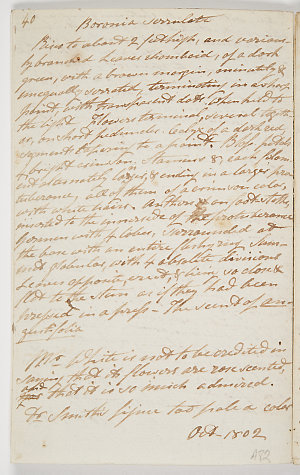 40
Boronia serrulata
Rises to about 2 feet high, and various-
ly branched. Leaves rhomboid, of a dark
green, with a brown margin, minutely &
unequally serrated, terminating in a sharp
point with transparent dots when held to
the light. Flowers terminal, several together
on short peduncles. Calyx of a dark red
segments tapering to a point. Blos: petals
4 bright crimson, Stamens 8, each filam-
ent alternately larger, & ending in a larger pro-
tuberance, all of them of a crimson color,
with white hairs. Anthers on foot stalks,
inserted to the inner side of the protuberance
Germen with 4 lobes, surrounded at
the base with an entire
and globular, with 4 obsolete divisions
Leaves opposite, erect, & being so close &
flat to the stem as if they had been
pressed in a press. The scent of an-
gustifolia
Mr. White is not to be credited in
saying that its flowers are rose scented,
that it is so much admired.
Dr Smith's figure too pale a color
Oct. 1802